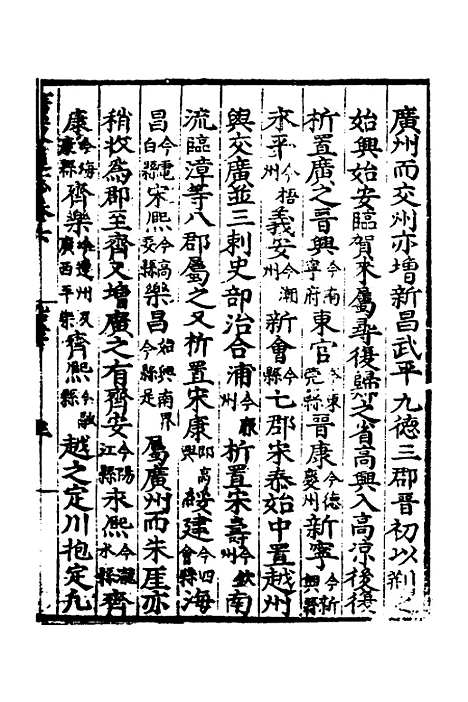 廣州而交州亦增新昌武平九德三郡晉初以荆之
始興始安臨賀來屬尋復歸之省高興入高凉後復
析置廣之晉興今南寧府東官今東莞縣晉康今德慶州新寧今新興縣
永平今梧州義安今潮州新會今縣七郡宋泰始中置越州
與交廣並三刺史部治合浦今廉州析置宋壽今欽州南
流臨漳等八郡屬之又析置宋康即高興綏建今四會縣海
昌今電白縣宋熙今高要縣樂昌始興南界今縣是屬廣州而朱厓亦
稍收為郡至齊又增廣之有齊安今陽江縣永熙今瀧水縣齊
康今海康縣齊樂今連州及廣西平樂齊熙今融縣越之定川抱定九